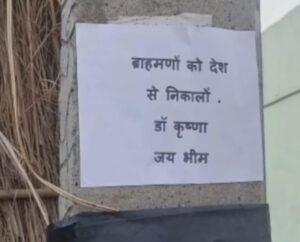 ब्राहमणों को देश
से निकालों .
डॉ कृष्णा
जय भीम